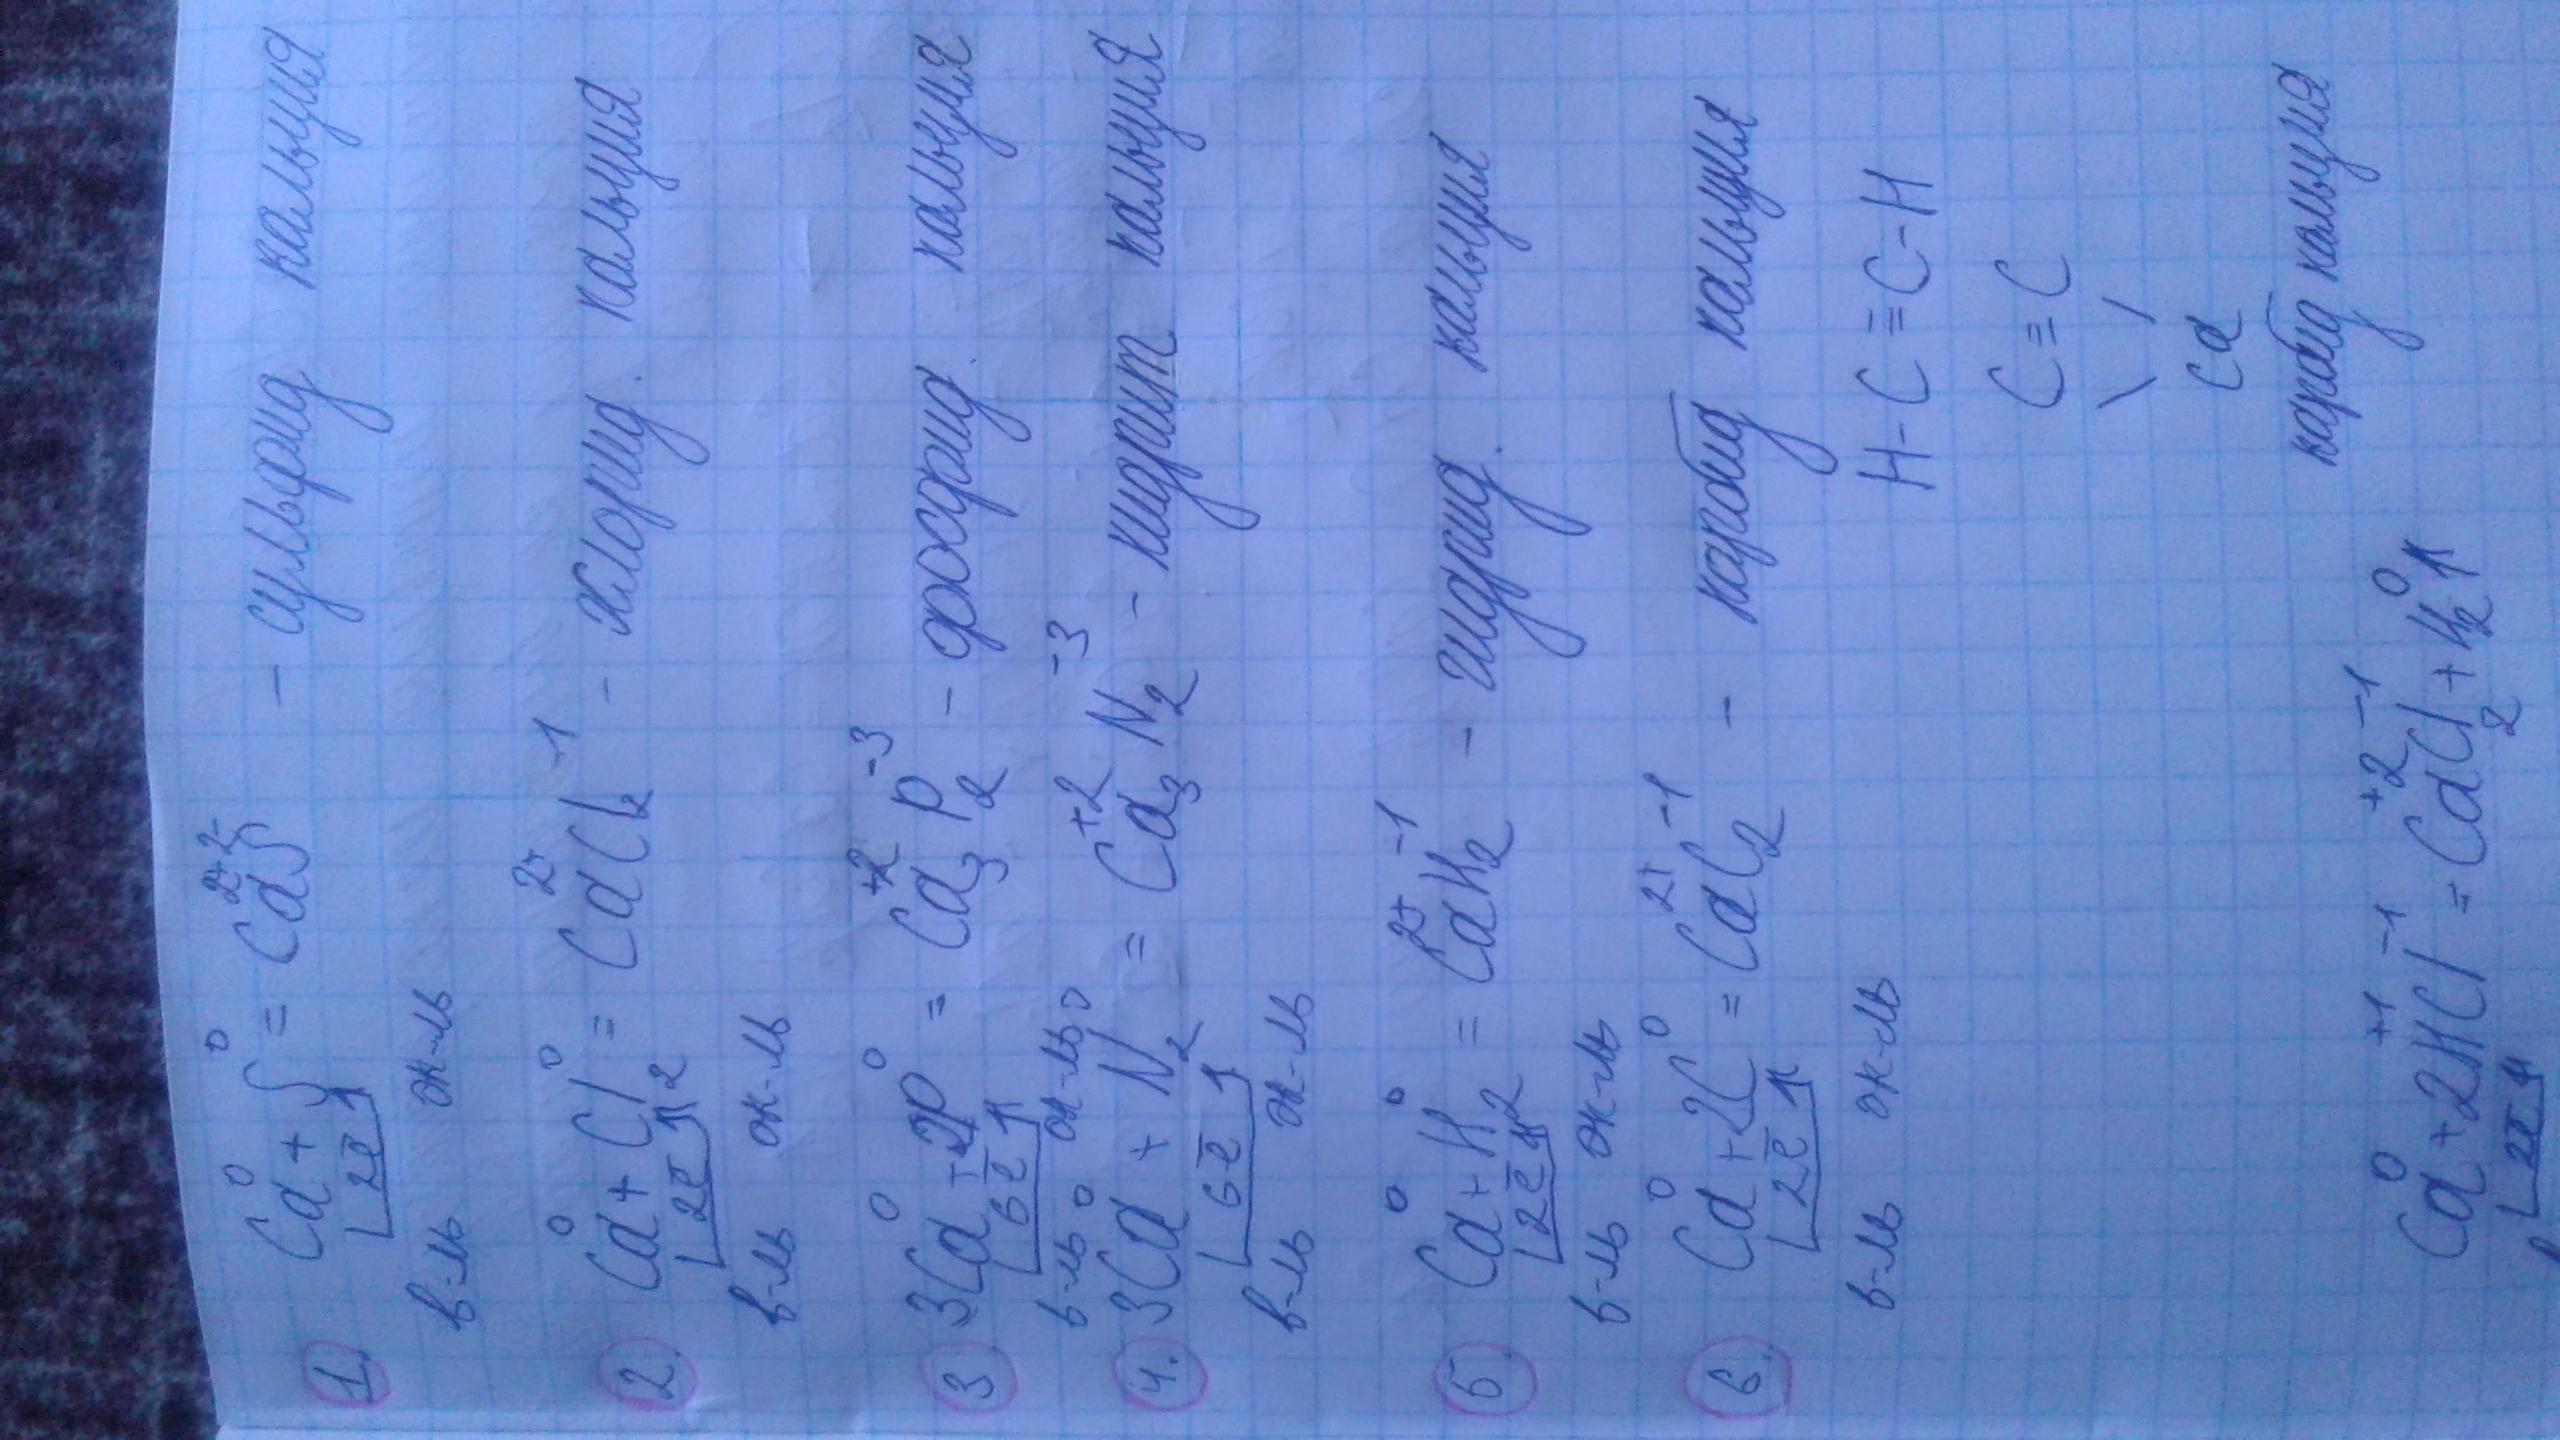 1. Ca⁰ + S⁰ = Ca²⁺S²⁻ - сульфид кальция
2e̅
в-ль ок-ль
2. Ca⁰ + Cl₂⁰ = Ca²⁺Cl₂⁻¹ - хлорид кальция
2e̅
в-ль ок-ль
3 3Ca⁰ + 2P⁰ = Ca₃⁺²P₂⁻³ - фосфид кальция
6e̅
в-ль ок-ль
4. 3Ca⁰ + N₂⁰ = Ca₃⁺²N₂⁻³ - нидрит кальция
6e̅
в-ль ок-ль
5 Ca⁰ + H₂⁰ = Ca²⁺H₂⁻¹ - гидрид кальция
2e̅
в-ль ок-ль
6. Ca⁰ + 2C⁰ = Ca²⁺C₂⁻¹ - карбид кальция
2e̅
в-ль ок-ль
H-C≡C-H
C≡C
\ /
Ca
карбид кальция
Ca⁰ + 2H⁺¹Cl⁻¹ = Ca⁺²Cl₂⁻¹ + H₂⁰
2e̅